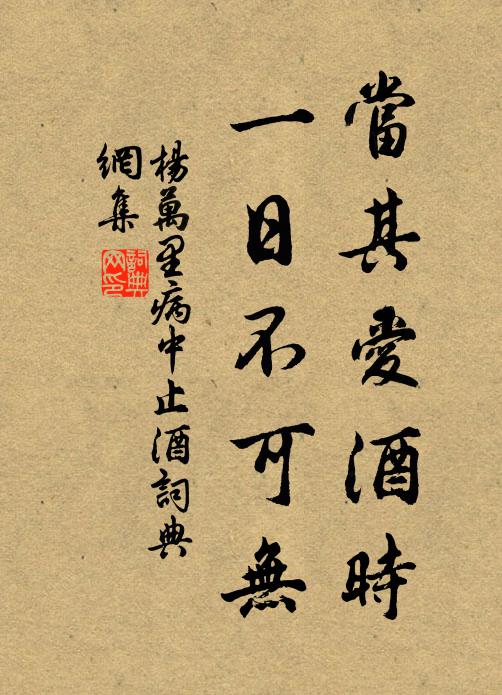 當其愛酒時
一日不可無
楊萬里病中止酒詞典
網集
詞典網印